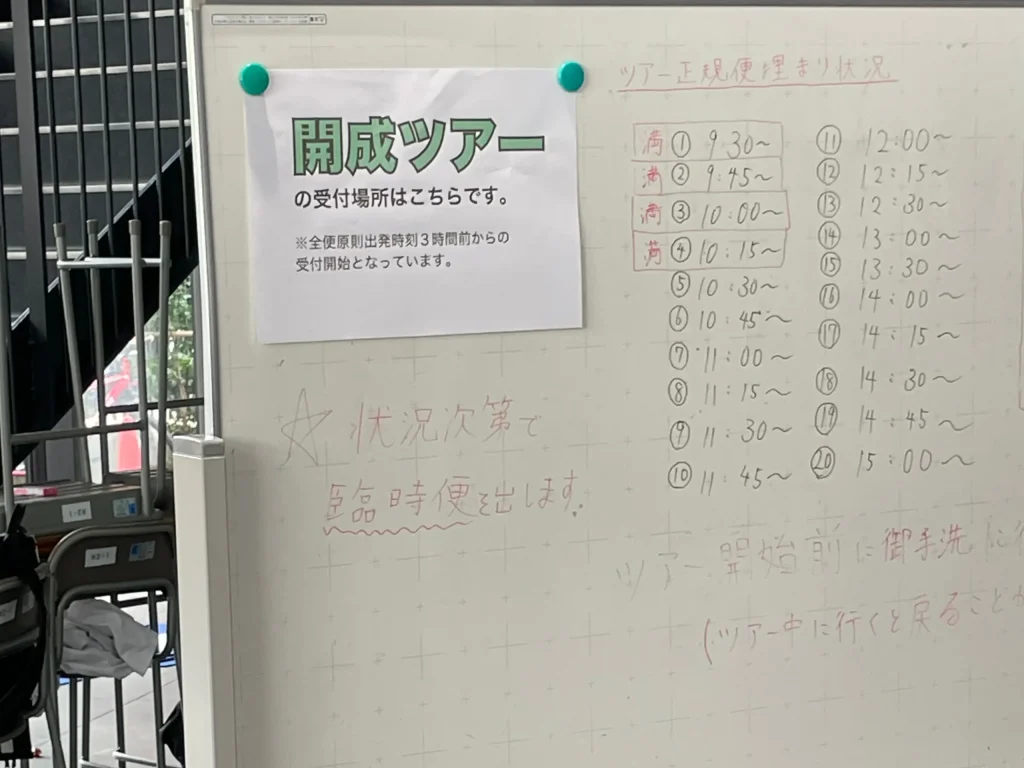 開成ツアー
の受付場所はこちらです。
※全便原則出発時刻3時間前からの
受付開始となっています。
☆ 状況次第で
臨時便を出します。
ツアー正規便埋まり状況
満 ① 9:30～
満 ② 9:45～
満 ③ 10:00～
満 ④ 10:15～
⑤ 10:30～
⑥ 10:45～
⑦ 11:00～
⑧ 11:15～
⑨ 11:30～
⑩ 11:45～
⑪ 12:00～
⑫ 12:15～
⑬ 12:30～
⑭ 13:00～
⑮ 13:30～
⑯ 14:00～
⑰ 14:15～
⑱ 14:30～
⑲ 14:45～
⑳ 15:00～
ツアー開始前に御手洗に行
(ツアー中に行くと戻ることが